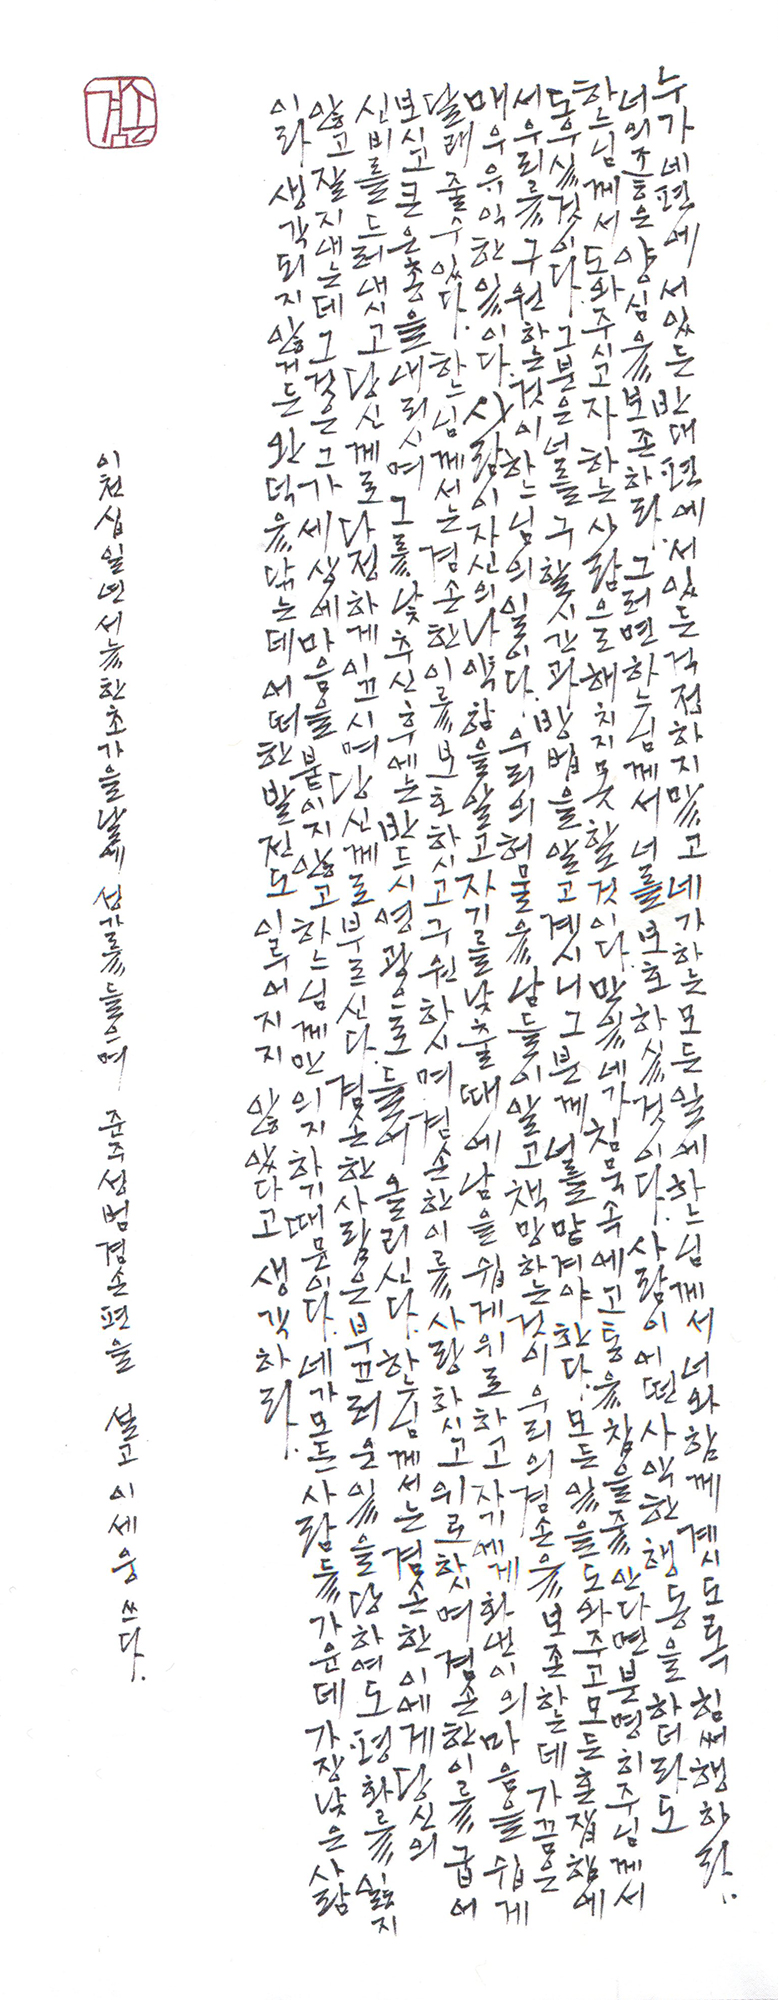 누가 네편에 서있든 반대편에 서있든 걱정하지 말고 네가하는 모든일에 하느님께서 너와함께 계시도록 힘써행하라.
너의 좋은 양심을 보존하라. 그러면 하느님께서 너를 보호하실것이다. 사람이 어떤 사악한 행동을 하더라도
하느님께서 도와주시고자 하는 사람으로 해치지못할것이다. 만일 네가 침묵속에 고통을 참을줄 안다면 분명히 주님께서
도우실것이다. 그분은 너를 구할시간과 방법을 알고 계시니 그분께 너를 맡겨야한다. 모든일을 도와주고 모든 혼잡함에
서 우리를 구원하는것이 하느님의 일이다. 우리의 허물을 남들이 알고 책망하는것이 우리의 겸손을 보존하는데 가끔은
매우 유익한일이다. 사람이 자신의 나약함을 알고 자기를 낮출때에 남을 쉽게 위로하고 자기에게 화낸이의 마음을 쉽게
달래줄수있다. 하느님께서는 겸손한이를 보호하시고 구원하시며 겸손한이를 사랑하시고 위로하시며 겸손한이를 굽어
보시고 큰은총을 내리시며 그를 낮추신후에는 반드시 영광으로 들어 올리신다. 하느님께서는 겸손한이에게 당신의
신비를 드러내시고 당신께로 다정하게 이끄시며 당신께로 부르신다. 겸손한사람은 부끄러운일을 당하여도 평화를 잃지
않고 잘지내는데 그것은 그가 세상에 마음을 붙이지않고 하느님께만 의지하기때문이다. 네가모든사람들 가운데 가장낮은 사람
이라 생각되지 않거든 완덕을 닦는데 어떠한발전도 이루어지지 않았다고 생각하라.
이천십일년 서늘한 초가을날에 성가를 들으며 준주성범 겸손편을 읽고 이세웅 쓰다.
겸손